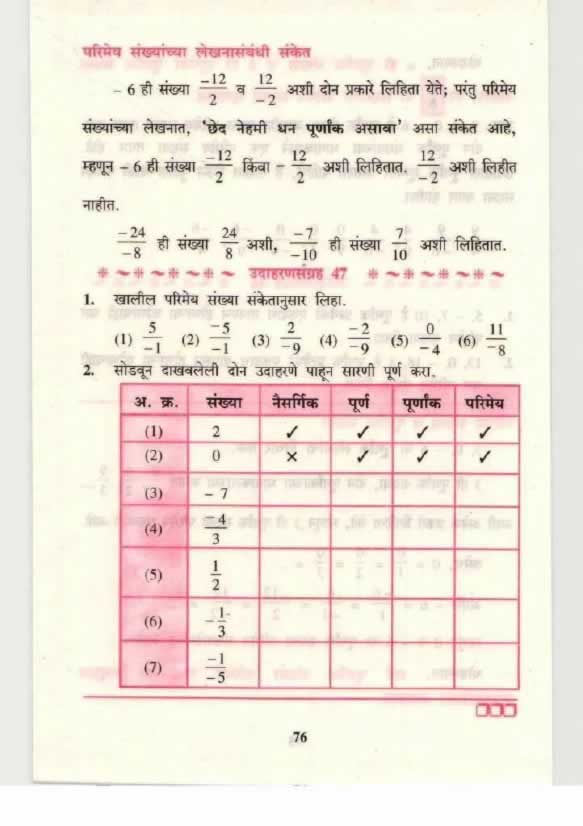 परिमेय संख्यांच्या लेखनासंबंधी संकेत
– 6 ही संख्या -12/2 व 12/-2 अशी दोन प्रकारे लिहिता येते; परंतु परिमेय
संख्यांच्या लेखनात, ‘छेद नेहमी धन पूर्णांक असावा’ असा संकेत आहे,
म्हणून – 6 ही संख्या -12/2 किंवा -12/2 अशी लिहितात. 12/-2 अशी लिहीत
नाहीत.
-24/-8 ही संख्या 24/8 अशी, -7/-10 ही संख्या 7/10 अशी लिहितात.
उदाहरणसंग्रह 47
1. खालील परिमेय संख्या संकेतानुसार लिहा.
(1) 5/-1 (2) -5/-1 (3) 2/-9 (4) -2/-9 (5) 0/-4 (6) 11/-8
2. सोडवून दाखवलेली दोन उदाहरणे पाहून सारणी पूर्ण करा.
अ. क्र. संख्या नैसर्गिक पूर्ण पूर्णांक परिमेय
(1) 2 ✓ ✓ ✓ ✓
(2) 0 × ✓ ✓ ✓
(3) – 7
(4) -4/3
(5) 1/2
(6) -1/3
(7) -1/-5
76